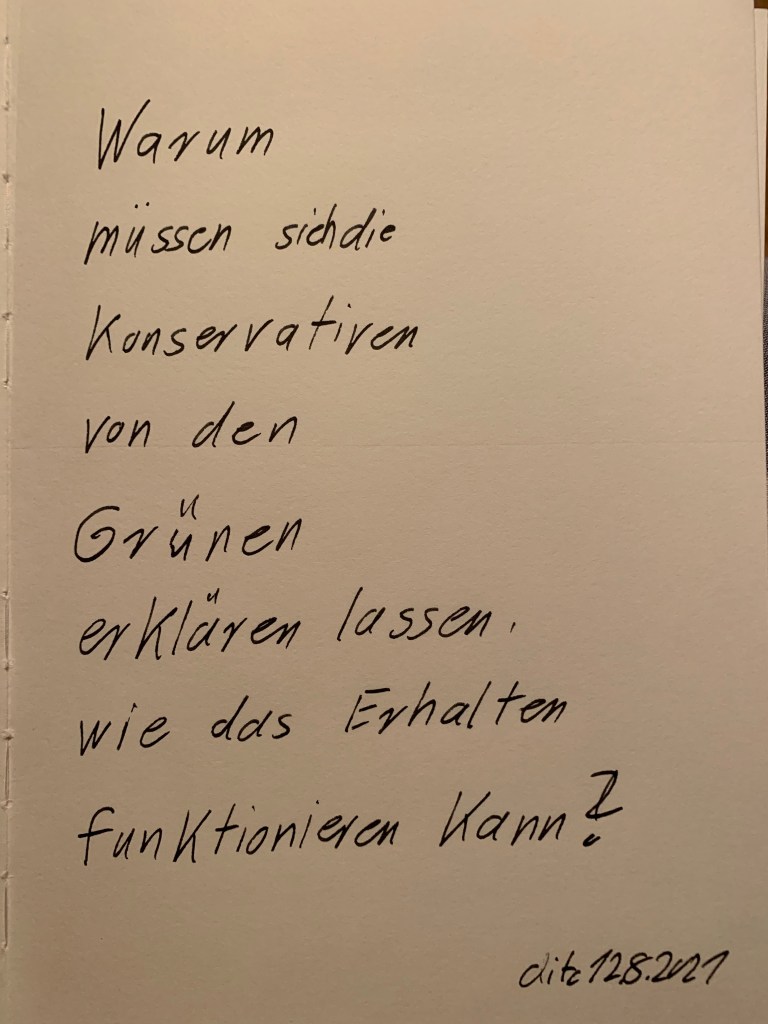 Warum
müssen sich die
Konservativen
von den
Grünen
erklären lassen,
wie das Erhalten
funktionieren kann?
12.8.2021